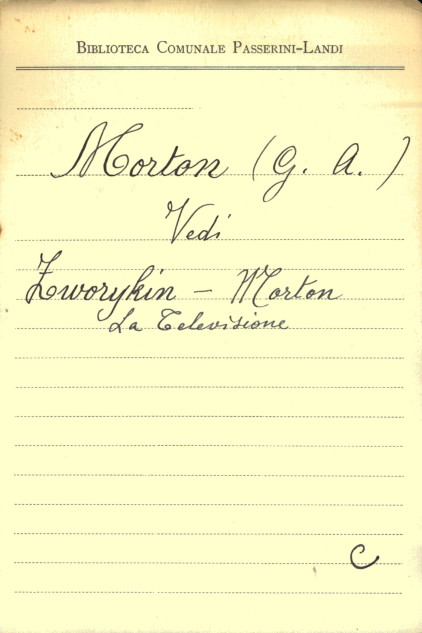 Biblioteca Comunale Passerini-Landi
Morton (G. A.)
Vedi
Zworykin - Morton
La Televisione
C